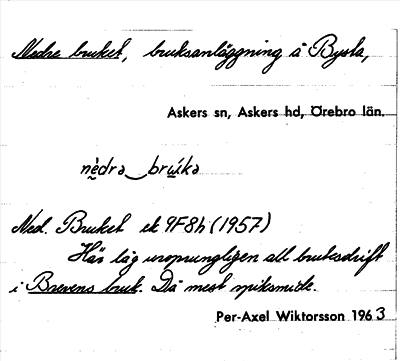 Nedre bruket, bruksanläggning å Bysta,
Askers sn, Askers hd, Örebro län.
nè̱dra‿bru̱íka
Ned. Bruket ek 9F8h (1957)
Här låg ursprungligen all bruksdrift
i Brevens bruk. Då mest spiksmide.
Per-Axel Wiktorsson 1963